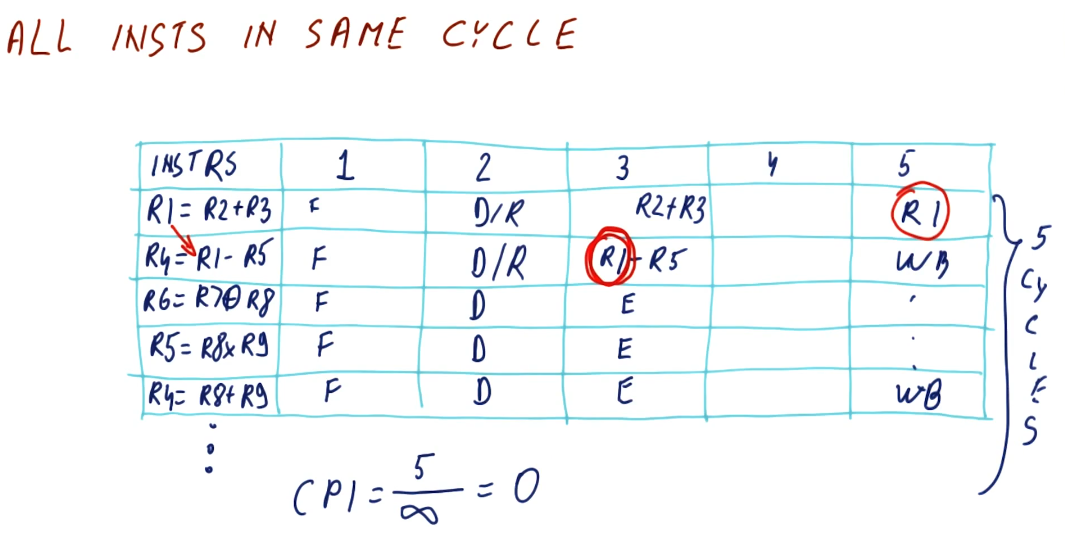 ALL INSTS IN SAME CYCLE
INSTRS 1 2 3 4 5
R1= R2+R3 F D/R R2+R3 R1
R4= R1- R5 F D/R R1- R5 WB
R6= R7⊕R8 F D E
R5= R8x R9 F D E
R4= R8+ R9 F D E WB
5 CYCLES
CPI = 5/∞ = 0